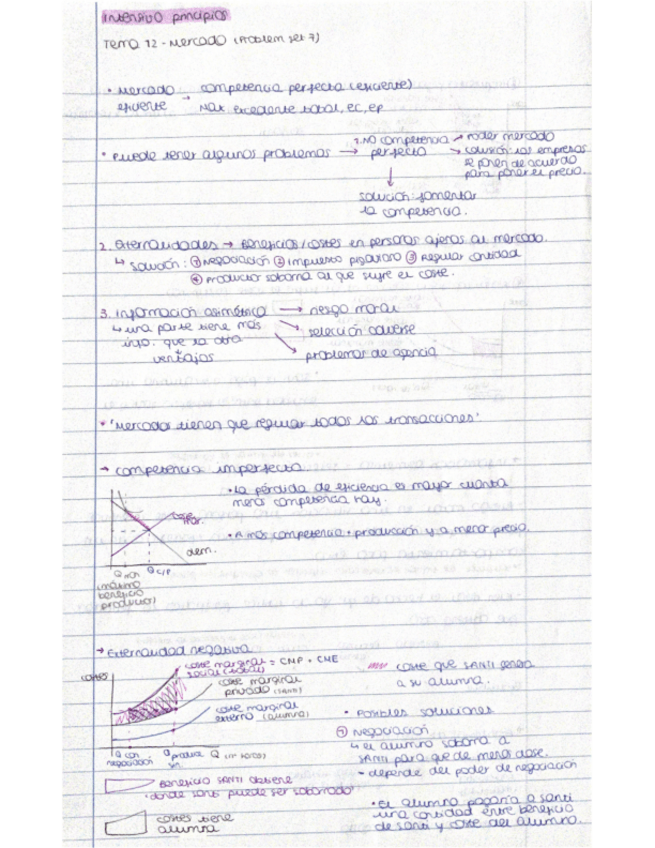 Intensivo principios
Tema 12 - Mercado (Problem set 7)
• Mercado eficiente → competencia perfecta (eficiente)
Max. excedente total, EC, EP
• Puede tener algunos problemas → 1. NO competencia perfecta → Poder mercado
→ colusión: las empresas
se ponen de acuerdo
para poner el precio.
solución: fomentar
la competencia.
2. Externalidades → Beneficios/costes en personas ajenas al mercado.
↳ Solución: ① Negociación ② Impuesto pigouviano ③ Regular cantidad
④ Productor soborna al que sufre el coste.
3. Información asimétrica → riesgo moral
↳ una parte tiene más → selección adversa
info. que la otra
ventajas → problemas de agencia
* 'Mercados tienen que regular todas las transacciones'
→ competencia imperfecta
• La pérdida de eficiencia es mayor cuanta
menos competencia hay.
coste mar.
• A más competencia + producción y a menor precio.
dem.
Q mon Q C/P
(máximo
beneficio
productor)
→ Externalidad negativa
coste marginal social (total) = CMP + CME
costes
coste marginal
privado (santi)
coste marginal
externo (alumna)
Q con negociación Q produce sin Q
coste que SANTI genera
a su alumna.
• Posibles soluciones
① Negociación
↳ el alumno soborna a
SANTI para que de menos clase.
- depende del poder de negociación
Beneficio SANTI obtiene
• donde santi puede ser sobornado
costes tiene
alumna
• El alumno pagaría a santi
una cantidad entre beneficio
de santi y coste del alumno.